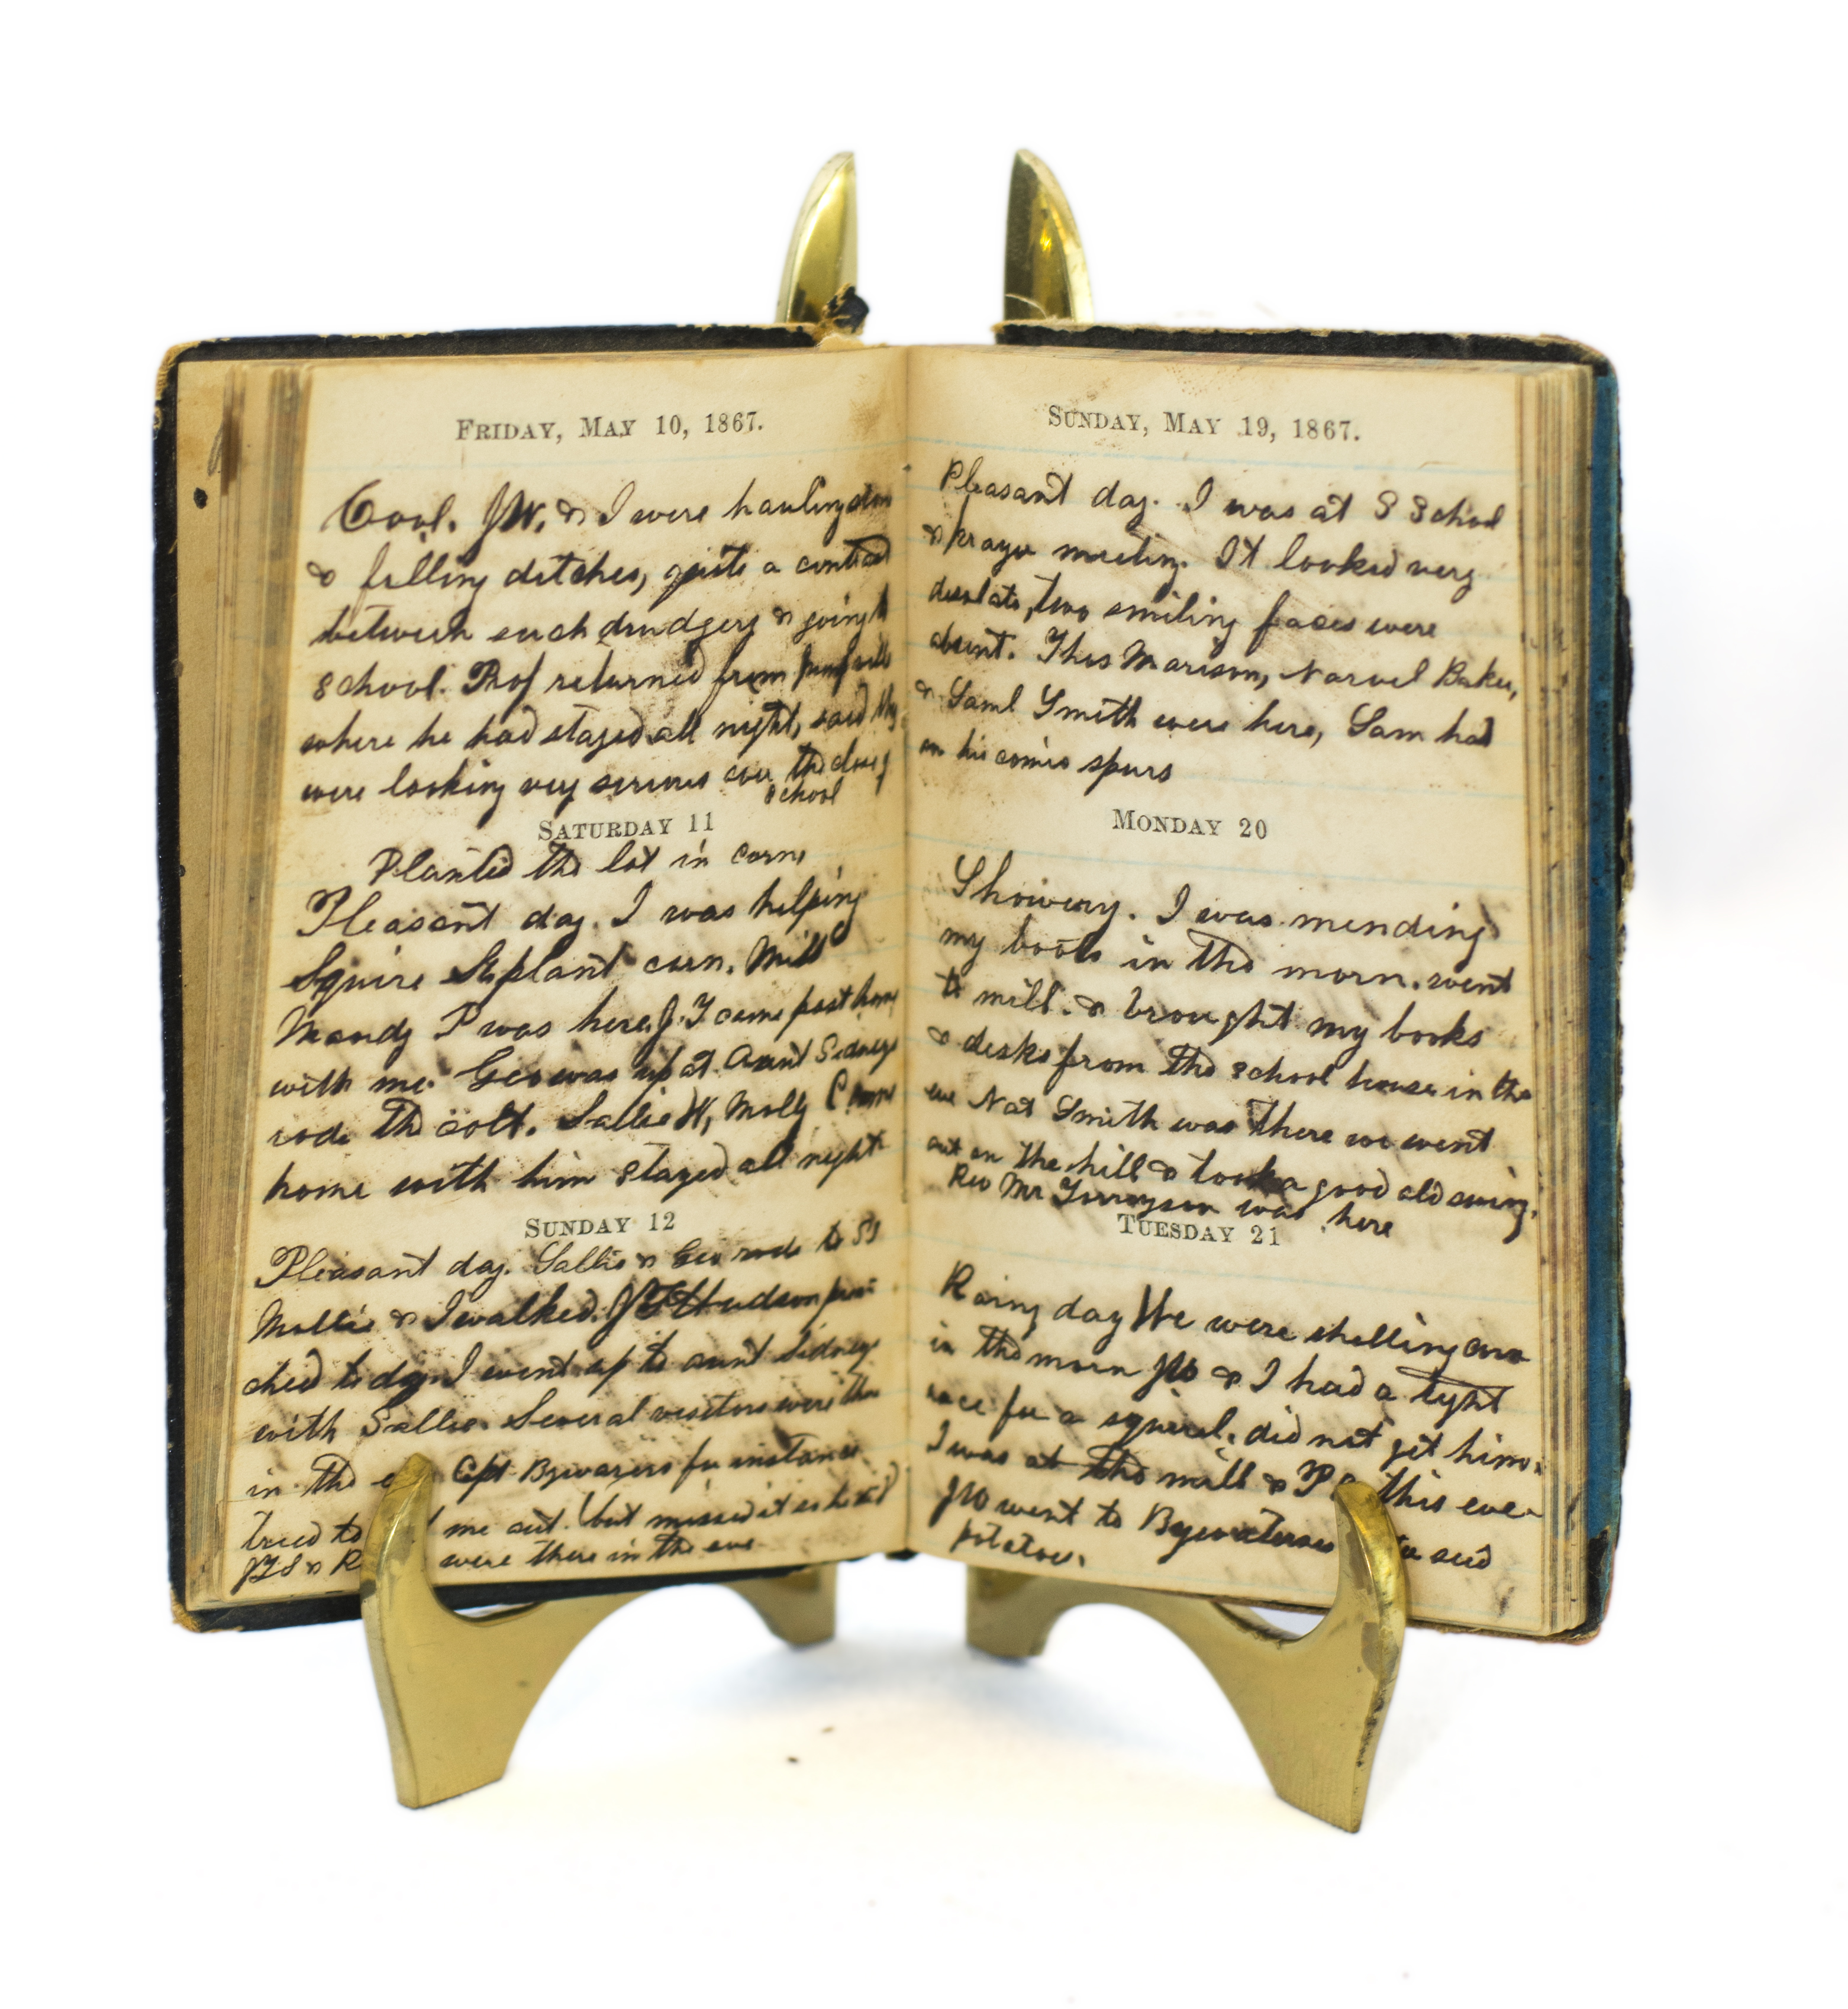 FRIDAY, MAY 10, 1867.
Cool. JW. & I were hauling
& filling ditches, quite a contrast
between such drudgery & going to
school. Prof returned from
where he had stayed all night, said they
were looking very serious over the
school
SATURDAY 11
Planted the lot in corn
Pleasant day. I was helping
Squire plant corn. Mill
Mandy P was here, J. T came past home
with me. Geo was up at Aunt Sidneys
rode the colt. Sallie H, Molly C came
home with him stayed all night
SUNDAY 12
Pleasant day. Sallie & Geo rode to SS
Mollie & I walked. J T Hudson prea-
ched to day. I went up to aunt Sidneys
with Sallie. Several visitors were there
in the Capt Bywaters for instance
tried to me out. but missed it as he did
JTS & R were there in the eve
SUNDAY, MAY 19, 1867.
Pleasant day. I was at S School
& prayer meeting. It looked very
desolate, two smiling faces were
absent. Thos Marison, Narvel Baker,
& Saml Smith were here, Sam had
on his spurs
MONDAY 20
Showery. I was mending
my boots in the morn. went
to mill. & brought my books
& desks from the school house in the
eve Nat Smith was there we went
out on the hill & took a good old swing.
Rev Mr was here
TUESDAY 21
Rainy day We were shelling corn
in the morn JW & I had a tight
race for a squirel, did not get him.
I was at the mill & P this eve
JW went to Bywaterses seed
potatoes.